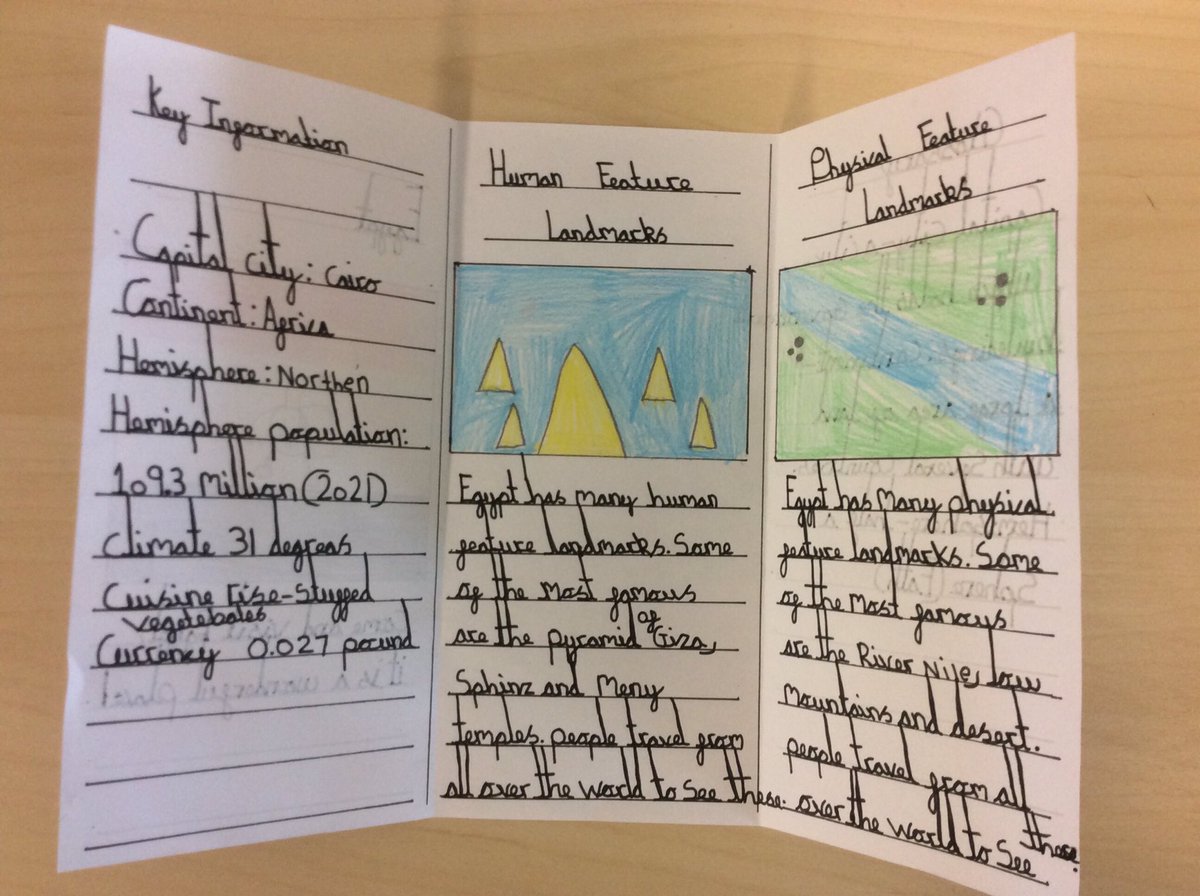 Key Information
Capital City: Cairo
Continent: Africa
Hemisphere: Northen
Hemisphere population:
109.3 Million (2021)
Climate 31 degreas
Cuisine rise-stuffed
vegetebales
Currency 0.027 pound
Human Feature
Landmarks
Egypt has many human
feature landmarks. Some
of the most famous
are the pyramid of Giza,
Sphinz and Meny
temples. people travel from
all over the world to see these.
Physical Feature
Landmarks
Egypt has Many physical
feature landmarks. Some
of the most famous
are the River Nile, low
mountains and desert.
people travel from all
over the world to see these.